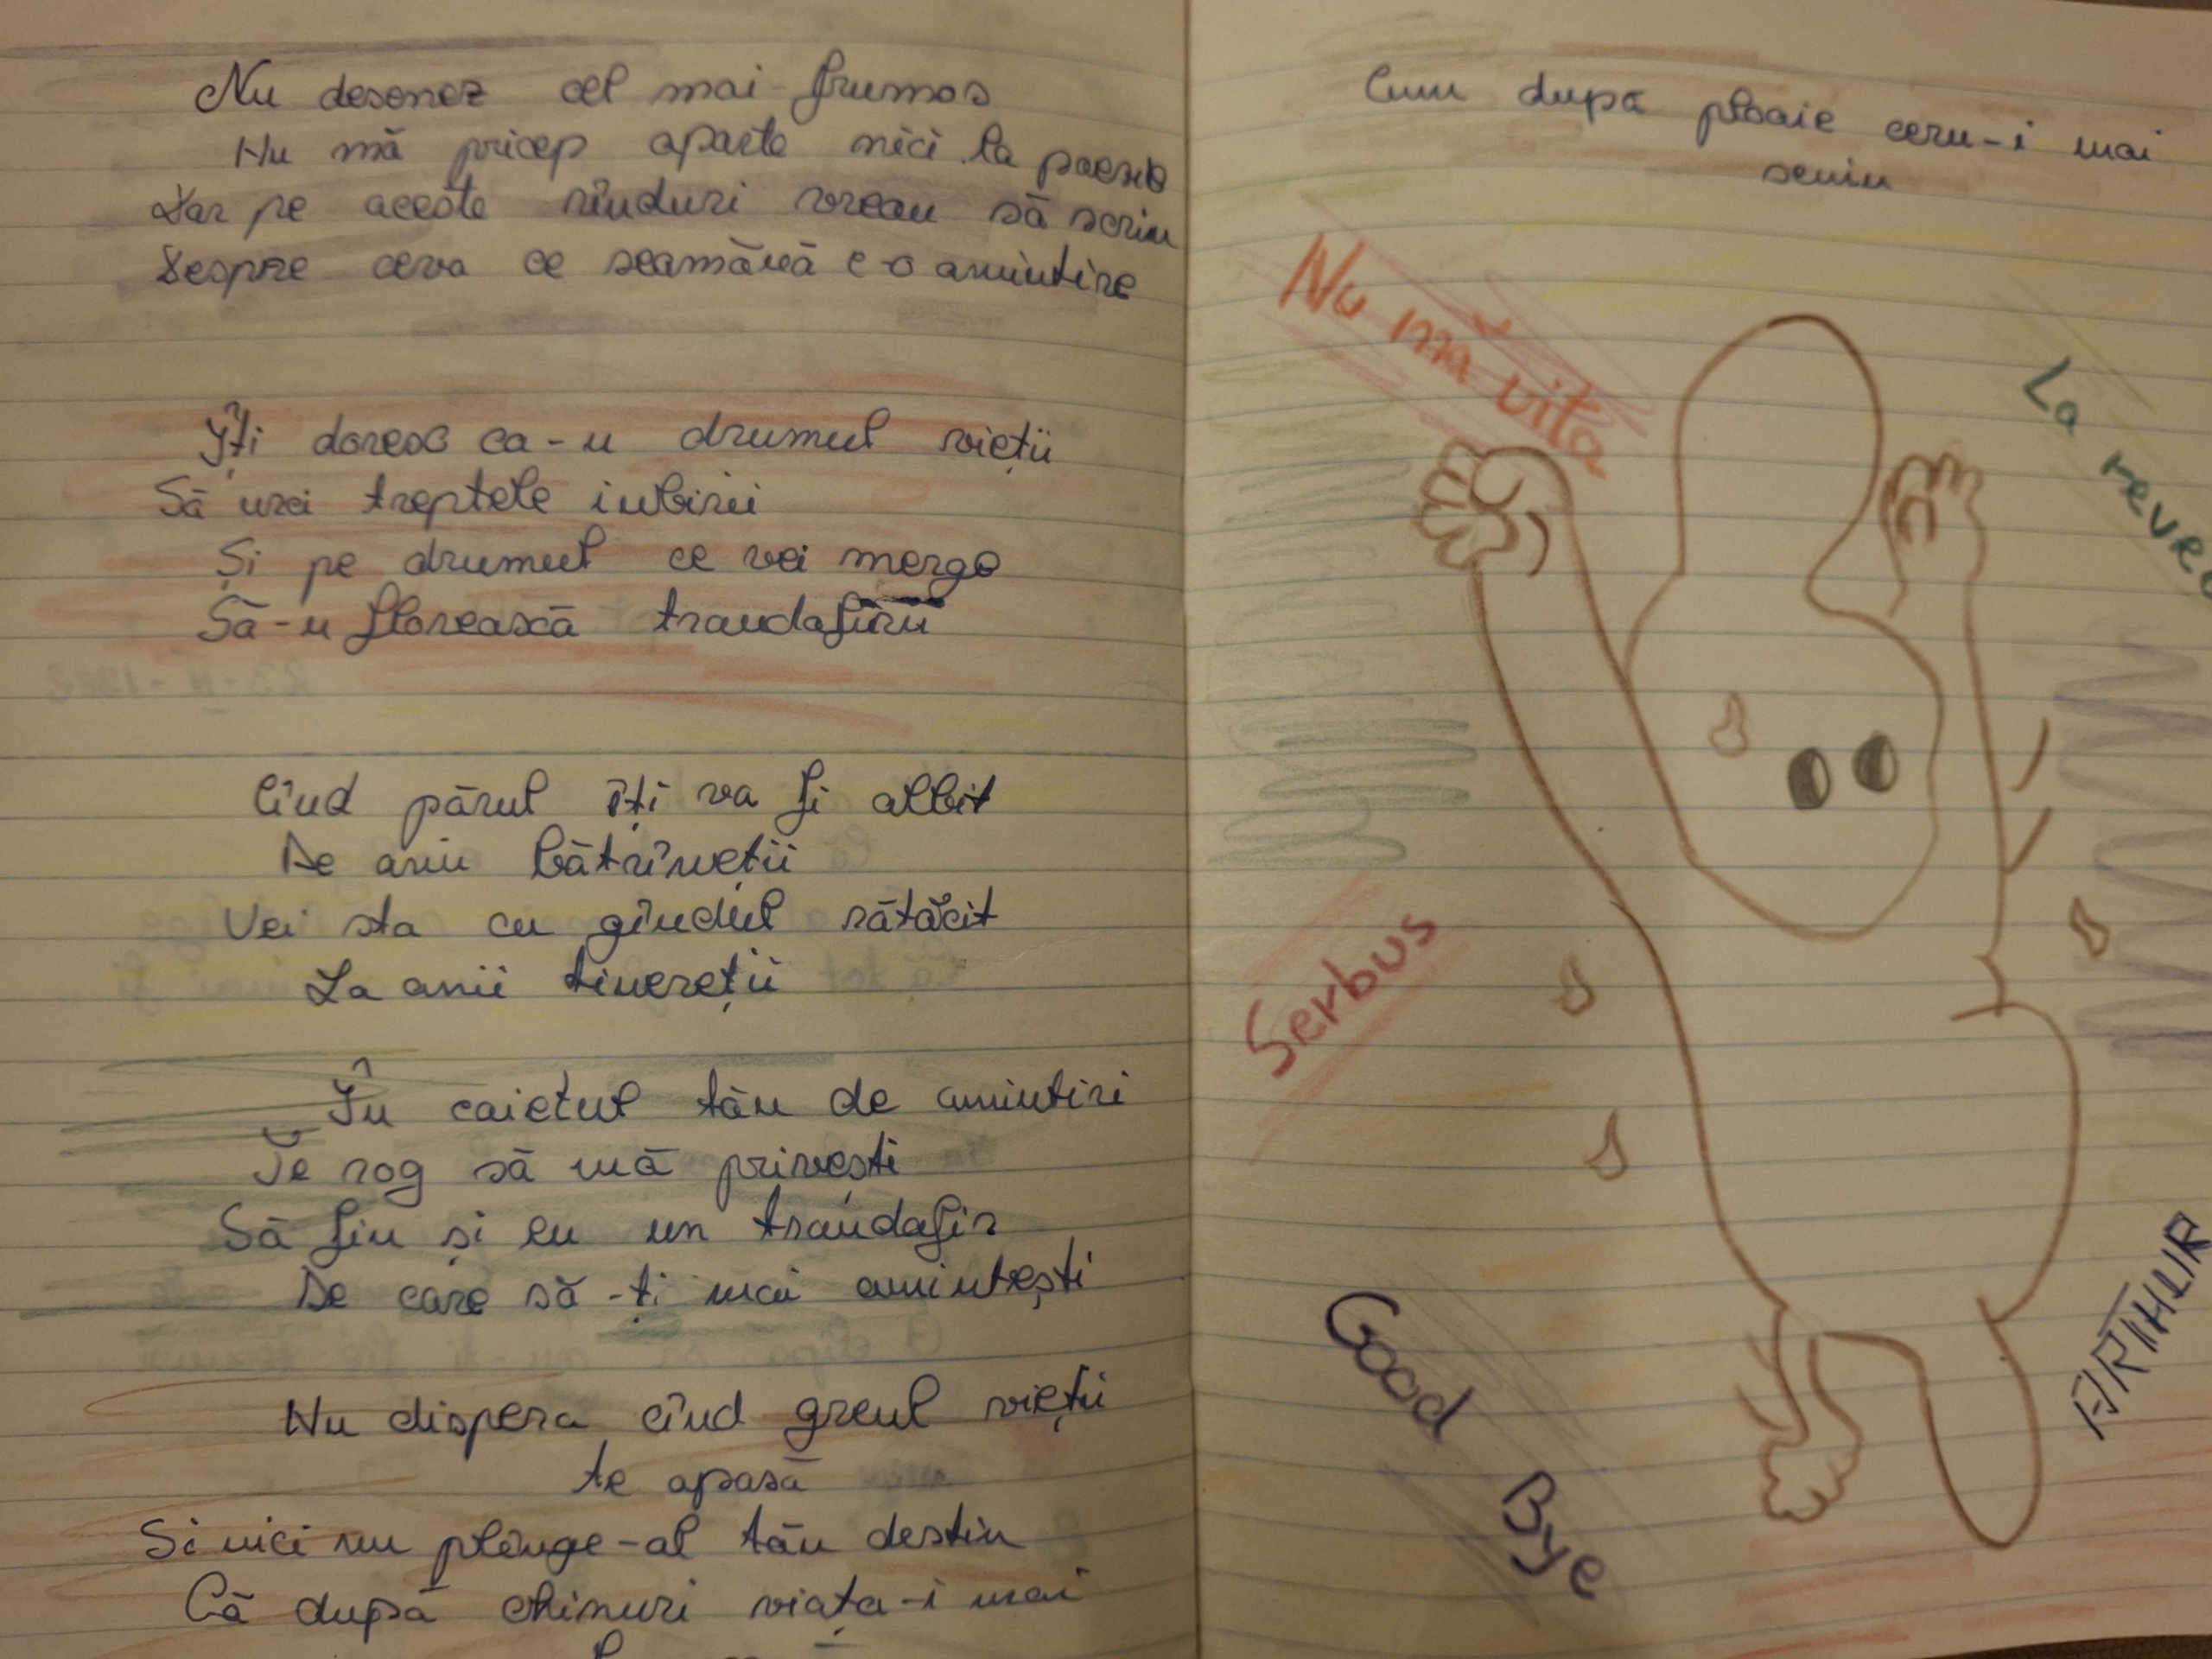 Nu desenez cel mai frumos
Nu mă pricep aparte nici la poezie
Dar pe aceste rînduri vreau să scriu
Despre ceva ce seamănă c-o amintire
Îți doresc ca-n drumul vieții
Să urci treptele iubirii
Și pe drumul ce vei merge
Să-n florească trandafirii
Cînd părul îți va fi albit
De anii bătrîneții
Vei sta cu gîndul rătăcit
La anii tinereții
În caietul tău de amintiri
Te rog să mă privești
Să fiu și eu un trandafir
De care să-ți mai amintești
Nu dispera cînd greul vieții
te apasă
Si nici nu plînge-al tău destin
Că după chinuri viața-i mai
Cum după ploaie ceru-i mai
senin
Nu mă uita
La reve
Serbus
Good
Bye
ARTHUR